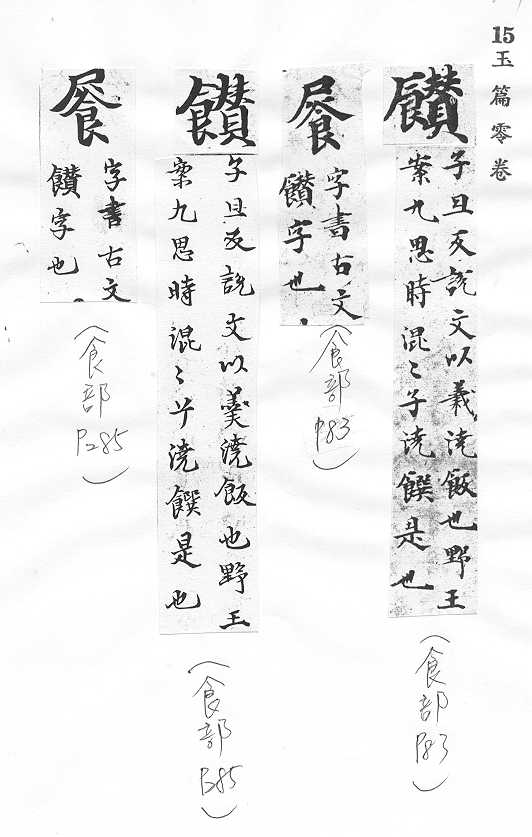 15玉篇零卷
饡
子旦反說文以羲澆飯也野王
案九思時混〻子澆饌是也
(食部 P83)
字書古文
饡字也
(食部 P83)
饡
子旦反說文以羹澆飯也野王
案九思時混〻兮澆饌是也
(食部 P285)
字書古文
饡字也
(食部 P285)